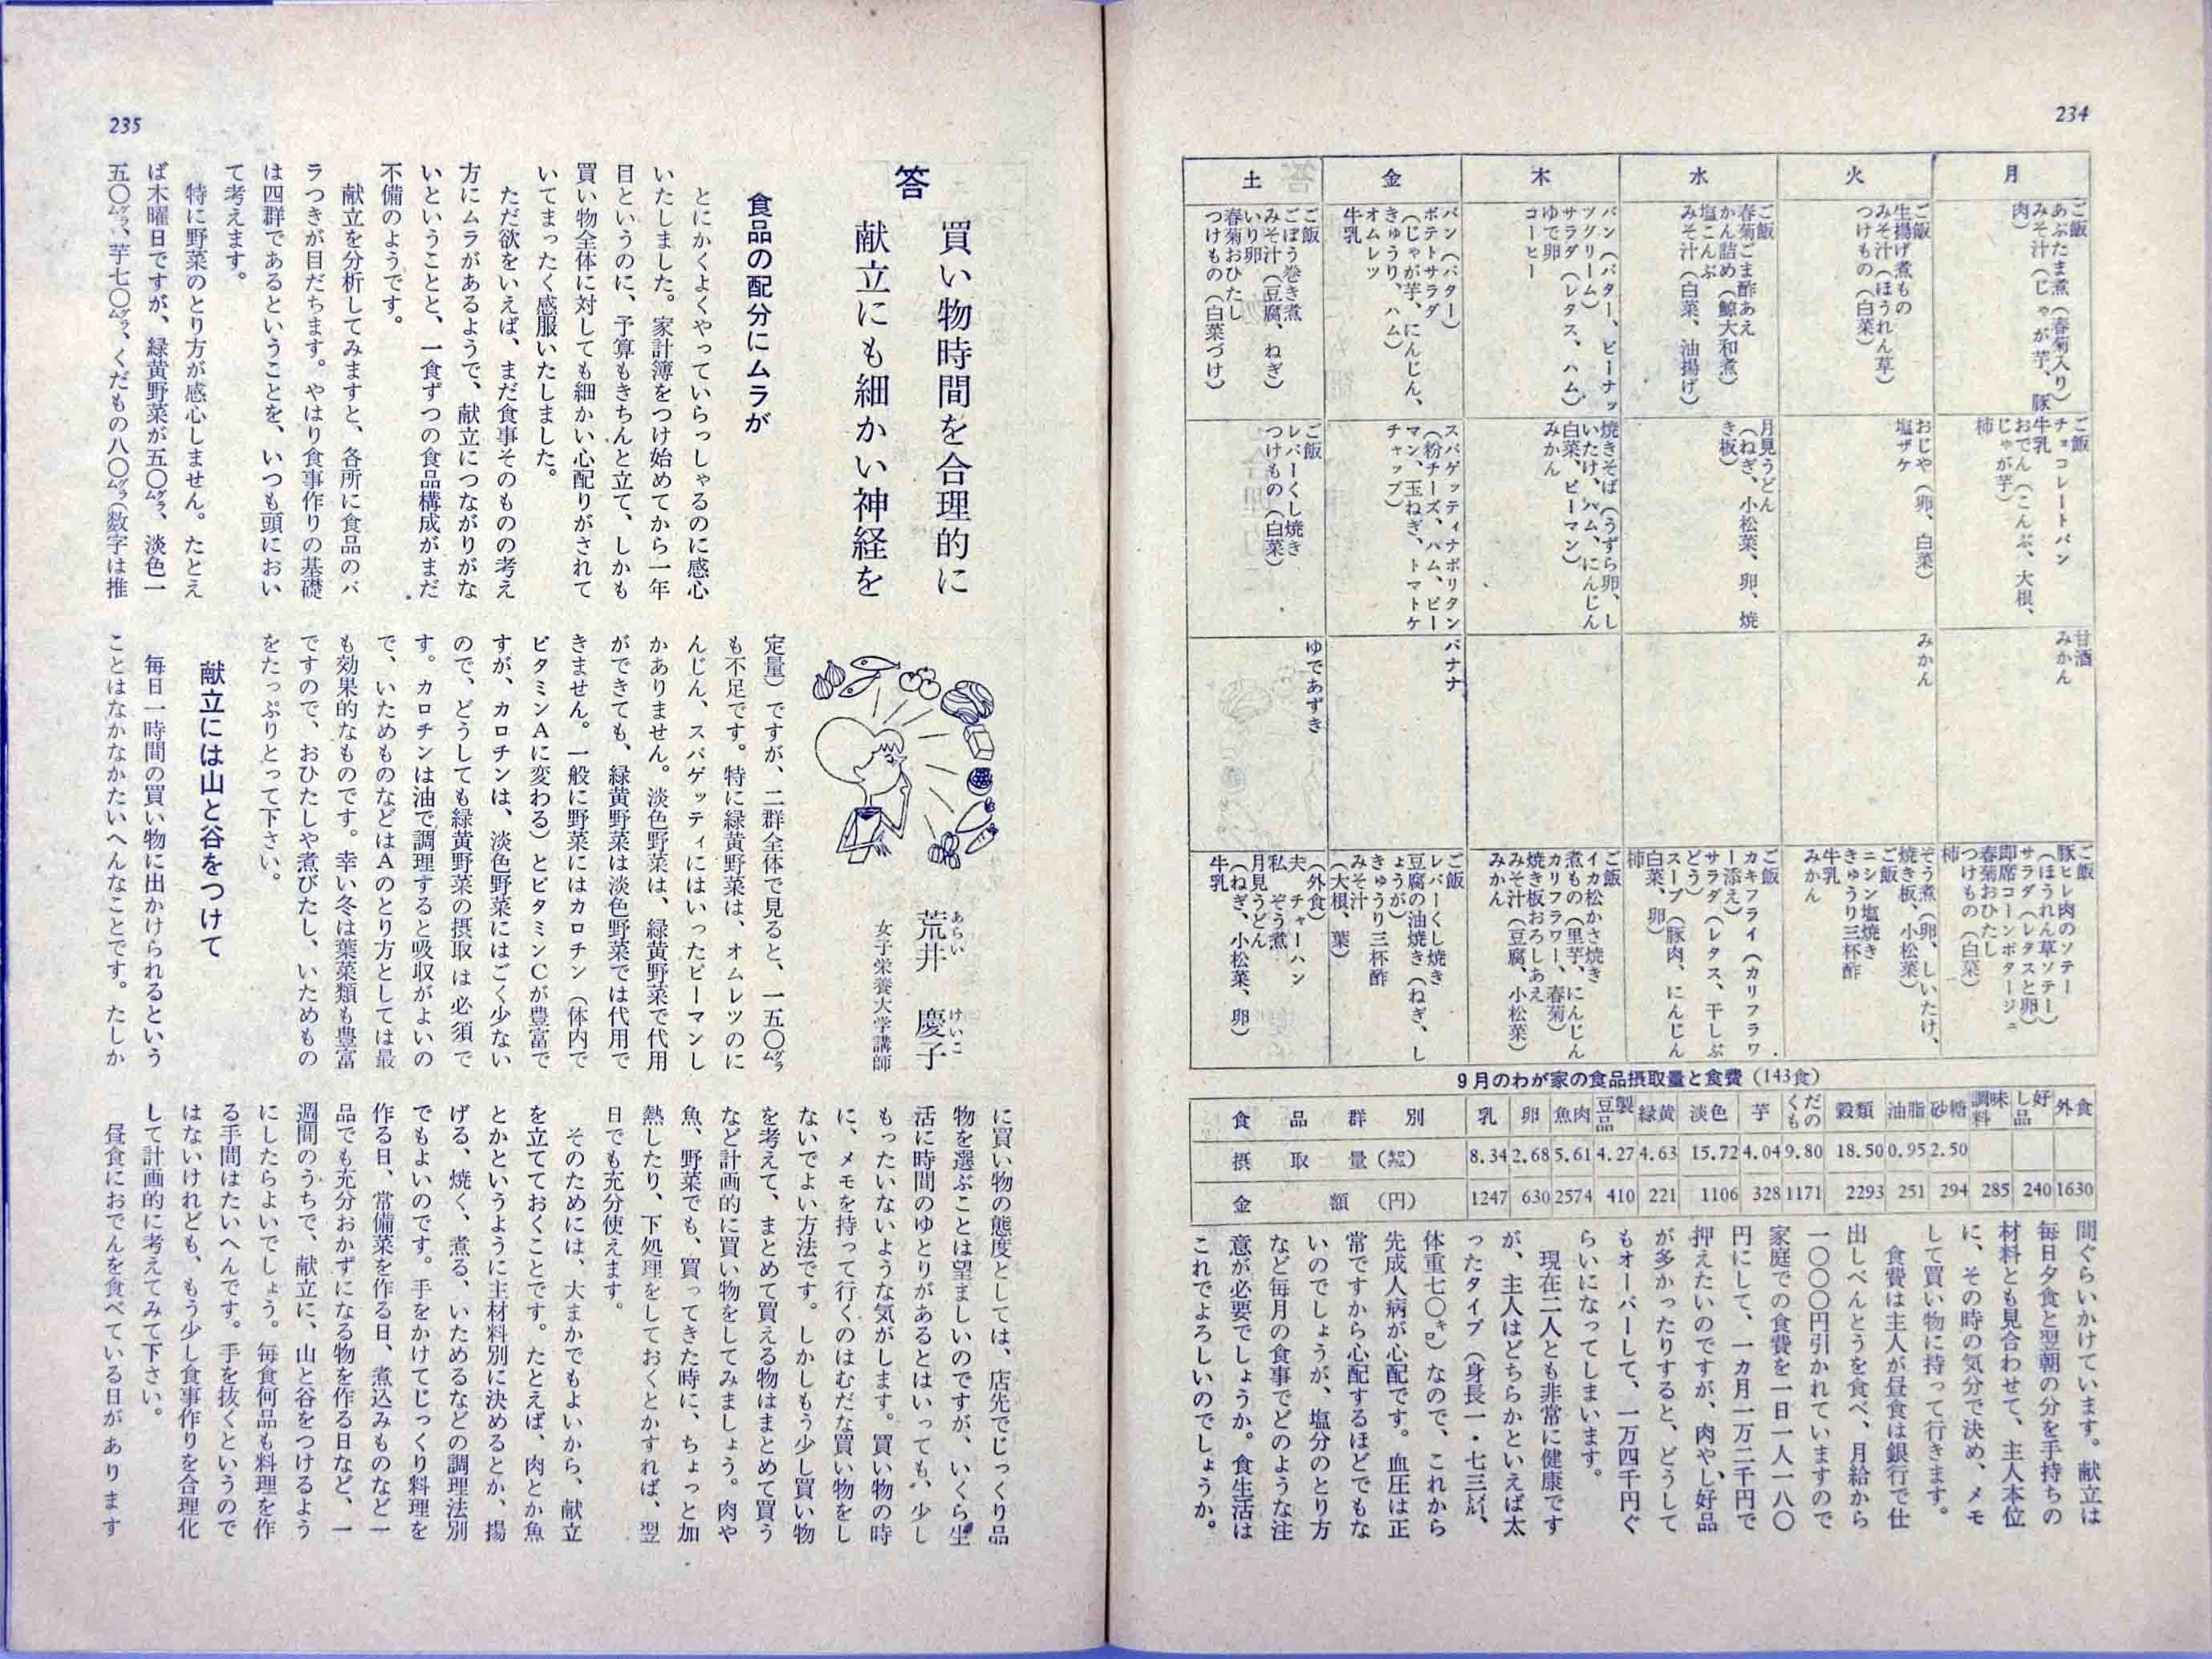 234
月
ご飯
あぶたま煮（春菊入り）
みそ汁（じゃが芋、豚
肉）
ご飯
チョコレートパン
牛乳
おでん（こんぶ、大根、
じゃが芋）
柿
甘酒
みかん
ご飯
豚ヒレ肉のソテー
（ほうれん草ソテー）
サラダ（レタスと卵）
即席コーンポタージュ
春菊おひたし
つけもの（白菜）
柿
火
ご飯
生揚げ煮もの
みそ汁（ほうれん草）
つけもの（白菜）
おじや（卵、白菜）
塩ザケ
みかん
ぞう煮（卵、しいたけ、
焼き板、小松菜）
ご飯
ニシン塩焼き
きゅうり三杯酢
牛乳
みかん
水
ご飯
春菊ごま酢あえ
かん詰め（鯨大和煮）
塩こんぶ
みそ汁（白菜、油揚げ）
月見うどん
（ねぎ、小松菜、卵、焼
き板）
ご飯
カキフライ（カリフラワ
ー添え）
サラダ（レタス、干しぶ
どう）
スープ（豚肉、にんじん
白菜、卵）
柿
木
パン（バター、ピーナッ
ツクリーム）
サラダ（レタス、ハム）
ゆで卵
コーヒー
焼きそば（うずら卵、し
いたけ、ハム、にんじん
白菜、ピーマン）
みかん
ご飯
イカ松かさ焼き
煮もの（里芋、にんじん
カリフラワー、春菊）
焼き板おろしあえ
みそ汁（豆腐、小松菜）
みかん
金
パン（バター）
ポテトサラダ
（じゃが芋、にんじん、
きゅうり、ハム）
オムレツ
牛乳
スパゲッティナポリタン
（粉チーズ、ハム、ピー
マン、玉ねぎ、トマトケ
チャップ）
バナナ
ご飯
レバーくし焼き
豆腐の油焼き（ねぎ、し
ょうが）
きゅうり三杯酢
みそ汁
（大根、葉）
土
ご飯
ごぼう巻き煮
みそ汁（豆腐、ねぎ）
いり卵
春菊おひたし
つけもの（白菜づけ）
ご飯
レバーくし焼き
つけもの（白菜）
ゆであずき
（外食）
夫　チャーハン
私　ぞう煮
月見うどん
（ねぎ、小松菜、卵）
牛乳
9月のわが家の食品摂取量と食費（143食）
食品群別　乳　卵　魚肉　豆製品　緑黄　淡色　芋　くだもの　穀類　油脂　砂糖　調味料　し好品　外食
摂取量（㌔㌘）　8.34　2.68　5.61　4.27　4.63　15.72　4.04　9.80　18.50　0.95　2.50
金額（円）　1247　630　2574　410　221　1106　328　1171　2293　251　294　285　240　1630
間ぐらいかけています。献立は
毎日夕食と翌朝の分を手持ちの
材料とも見合わせて、主人本位
に、その時の気分で決め、メモ
して買い物に持って行きます。
食費は主人が昼食は銀行で仕
出しべんとうを食べ、月給から
一〇〇〇円引かれていますので
家庭での食費を一日一人一八〇
円にして、一カ月一万二千円で
押えたいのですが、肉やし好品
が多かったりすると、どうして
もオーバーして、一万四千円ぐ
らいになってしまいます。
現在二人とも非常に健康です
が、主人はどちらかといえば太
ったタイプ（身長一・七三㍍、
体重七〇㌔）なので、これから
先成人病が心配です。血圧は正
常ですから心配するほどでもな
いのでしょうが、塩分のとり方
など毎月の食事でどのような注
意が必要でしょうか。食生活は
これでよろしいのでしょうか。
235
答
買い物時間を合理的に
献立にも細かい神経を
荒井　慶子
あらい　けいこ
女子栄養大学講師
食品の配分にムラが
とにかくよくやっていらっしゃるのに感心
いたしました。家計簿をつけ始めてから一年
目というのに、予算もきちんと立て、しかも
買い物全体に対しても細かい心配りがされて
いてまったく感服いたしました。
ただ欲をいえば、まだ食事そのものの考え
方にムラがあるようで、献立につながりがな
いということと、一食ずつの食品構成がまだ
不備のようです。
献立を分析してみますと、各所に食品のバ
ラつきが目だちます。やはり食事作りの基礎
は四群であるということを、いつも頭におい
て考えます。
特に野菜のとり方が感心しません。たとえ
ば木曜日ですが、緑黄野菜が五〇㌘、淡色一
五〇㌘、芋七〇㌘、くだもの八〇㌘（数字は推
定量）ですが、二群全体で見ると、一五〇㌘
も不足です。特に緑黄野菜は、オムレツのに
んじん、スパゲッティにはいったピーマンし
かありません。淡色野菜は、緑黄野菜で代用
ができても、緑黄野菜は淡色野菜では代用で
きません。一般に野菜にはカロチン（体内で
ビタミンAに変わる）とビタミンCが豊富で
すが、カロチンは、淡色野菜にはごく少ない
ので、どうしても緑黄野菜の摂取は必須で
す。カロチンは油で調理すると吸収がよいの
で、いためものなどはAのとり方としては最
も効果的なものです。幸い冬は葉菜類も豊富
ですので、おひたしや煮びたし、いためもの
をたっぷりとって下さい。
献立には山と谷をつけて
毎日一時間の買い物に出かけられるという
ことはなかなかたいへんなことです。たしか
に買い物の態度としては、店先でじっくり品
物を選ぶことは望ましいのですが、いくら生
活に時間のゆとりがあるとはいっても、少し
もったいないような気がします。買い物の時
に、メモを持って行くのはむだな買い物をし
ないでよい方法です。しかしもう少し買い物
を考えて、まとめて買える物はまとめて買う
など計画的に買い物をしてみましょう。肉や
魚、野菜でも、買ってきた時に、ちょっと加
熱したり、下処理をしておくとかすれば、翌
日でも充分使えます。
そのためには、大まかでもよいから、献立
を立てておくことです。たとえば、肉とか魚
とかというように主材料別に決めるとか、揚
げる、焼く、煮る、いためるなどの調理法別
でもよいのです。手をかけてじっくり料理を
作る日、常備菜を作る日、煮込みものなど一
品でも充分おかずになる物を作る日など、一
週間のうちで、献立に、山と谷をつけるよう
にしたらよいでしょう。毎食何品も料理を作
る手間はたいへんです。手を抜くというので
はないけれども、もう少し食事作りを合理化
して計画的に考えてみて下さい。
昼食におでんを食べている日があります